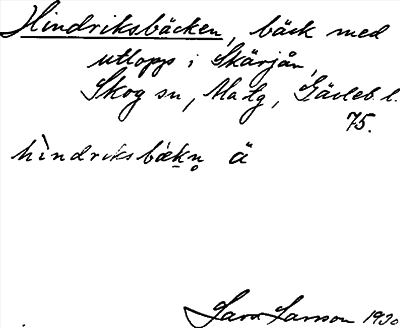 Hindriksbäcken, bäck med
utlopp i Skärjån,
Skog sn, Ala tg, Gävleb. l.
75.
hìndriksbæ̀kn̥ ä
Lars Larsson 1930